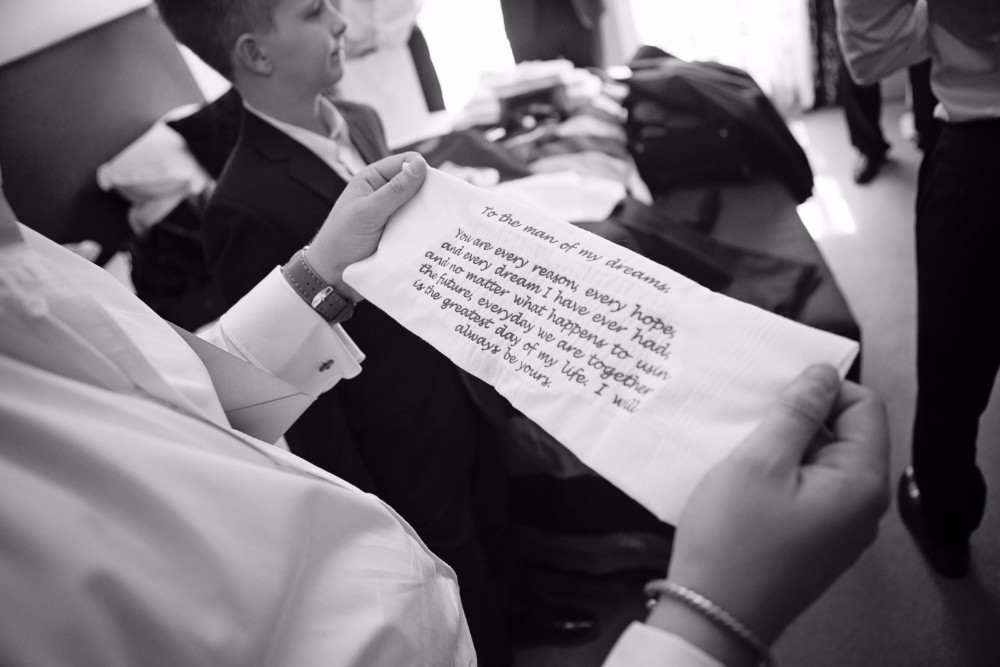 To the man of my dreams,
You are every reason, every hope,
and every dream I have ever had,
and no matter what happens to us in
the future, everyday we are together
is the greatest day of my life. I will
always be yours.